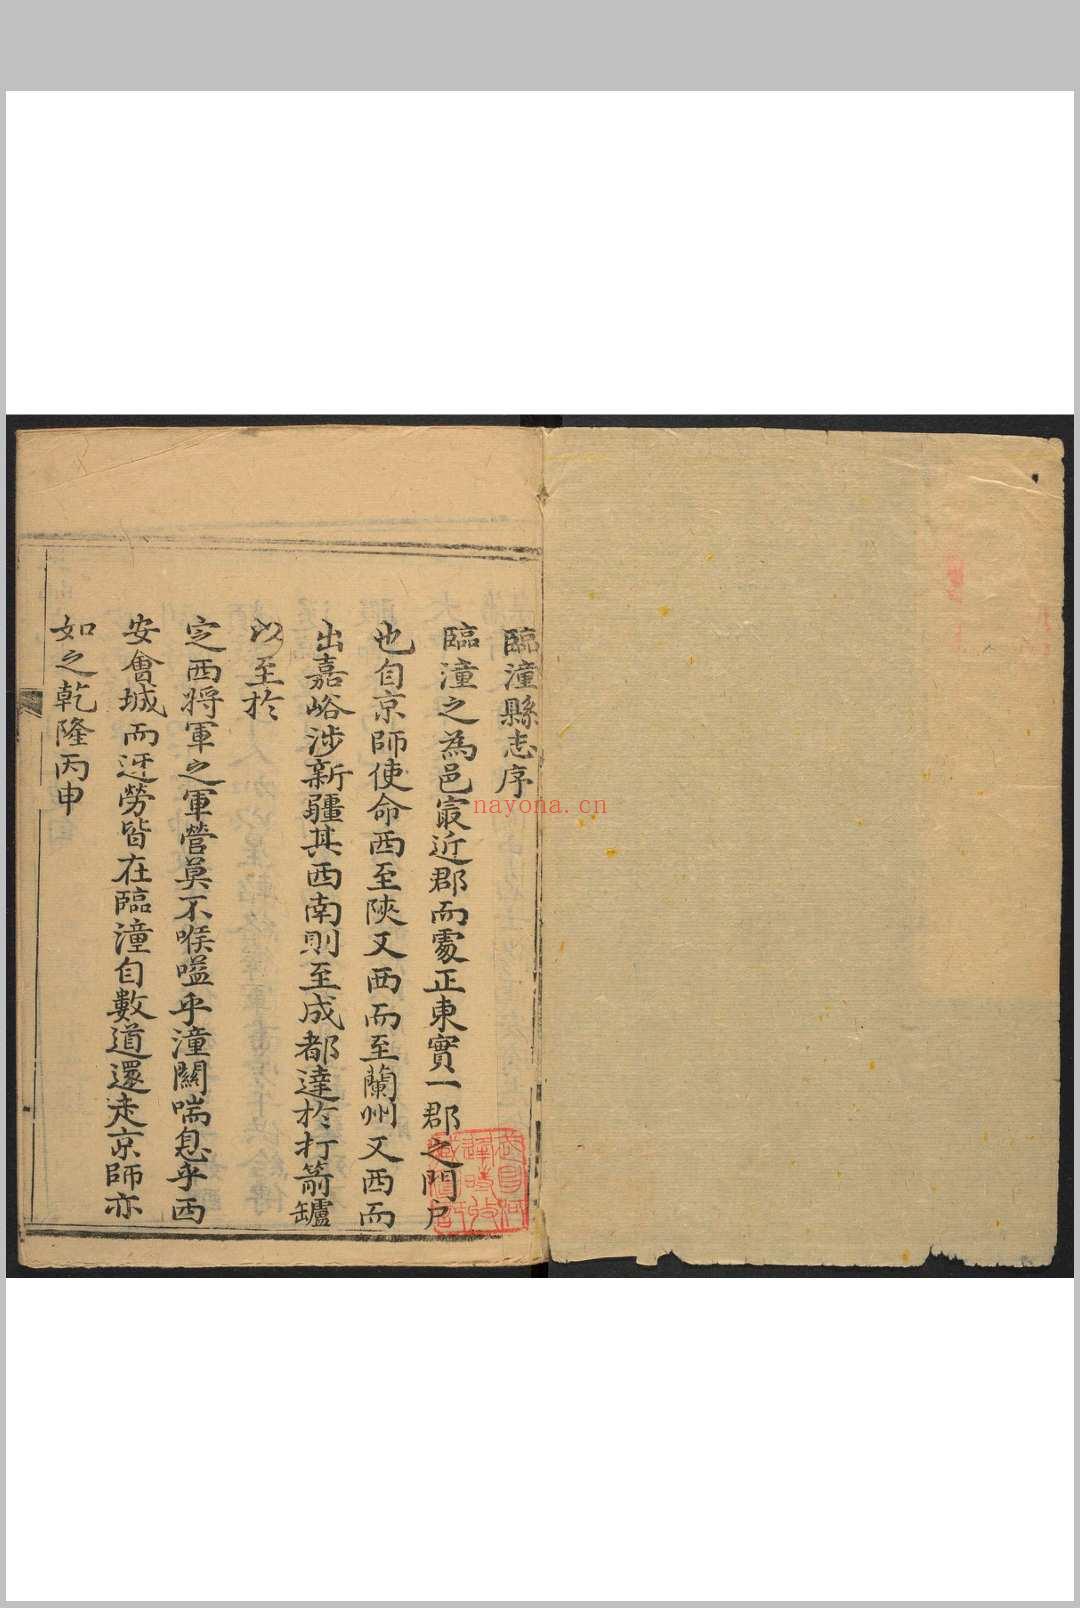 臨潼縣志序
臨潼之為邑㝡近郡而䖏正東實一郡之門户
也自京師使命西至陜又西而至蘭州又西而
出嘉峪涉新疆其西南則至成都達於打箭鑪
以至於
定西將軍之軍營莫不喉嗌乎潼關喘息乎西
安會城而迓勞皆在臨潼自數道還走京師亦
如之乾隆丙申
nayona.cn